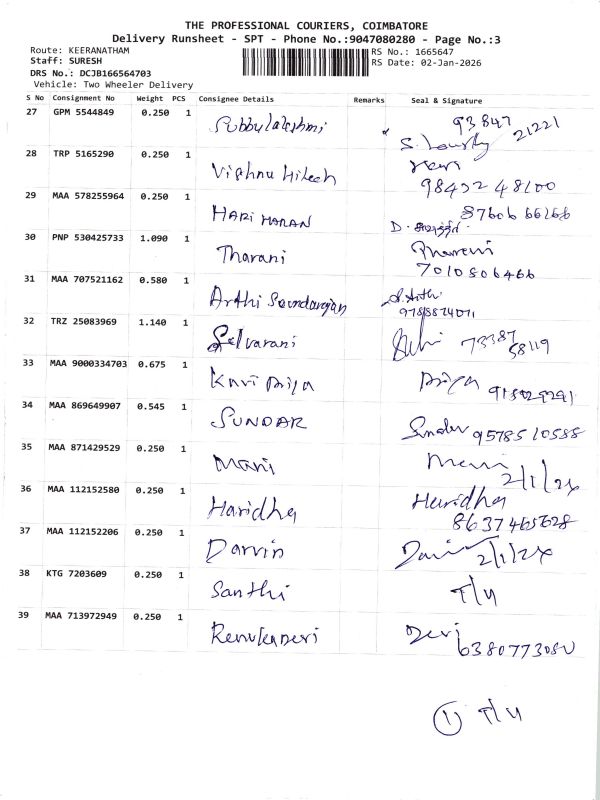 THE PROFESSIONAL COURIERS, COIMBATORE
Delivery Runsheet - SPT - Phone No.:9047080280 - Page No.:3
Route: KEERANATHAM RS No.: 1665647
Staff: SURESH RS Date: 02-Jan-2026
DRS No.: DCJB166564703
Vehicle: Two Wheeler Delivery
S No Consignment No Weight PCS Consignee Details Remarks Seal & Signature
27 GPM 5544849 0.250 1 Subbulakshmi 93847 21221
28 TRP 5165290 0.250 1 Vishnu Hitesh 98422 48100
29 MAA 578255964 0.250 1 HARI HARAN 87606 66266
30 PNP 530425733 1.090 1 Tharani Tharani
7010806466
31 MAA 707521162 0.580 1 Arthi Soundarajan
32 TRZ 25083969 1.140 1 Selvarani 73387
58119
33 MAA 9000334703 0.675 1 Kavi Priya Priya
34 MAA 869649907 0.545 1 SUNDAR Sundar 9578510588
35 MAA 871429529 0.250 1 Mani Mani
2/1/26
36 MAA 112152580 0.250 1 Haridha Haridha
8637465628
37 MAA 112152206 0.250 1 Darvin Darvin
2/1/26
38 KTG 7203609 0.250 1 Santhi T/4
39 MAA 713972949 0.250 1 Renukadevi Devi
6380773080
1 T/4